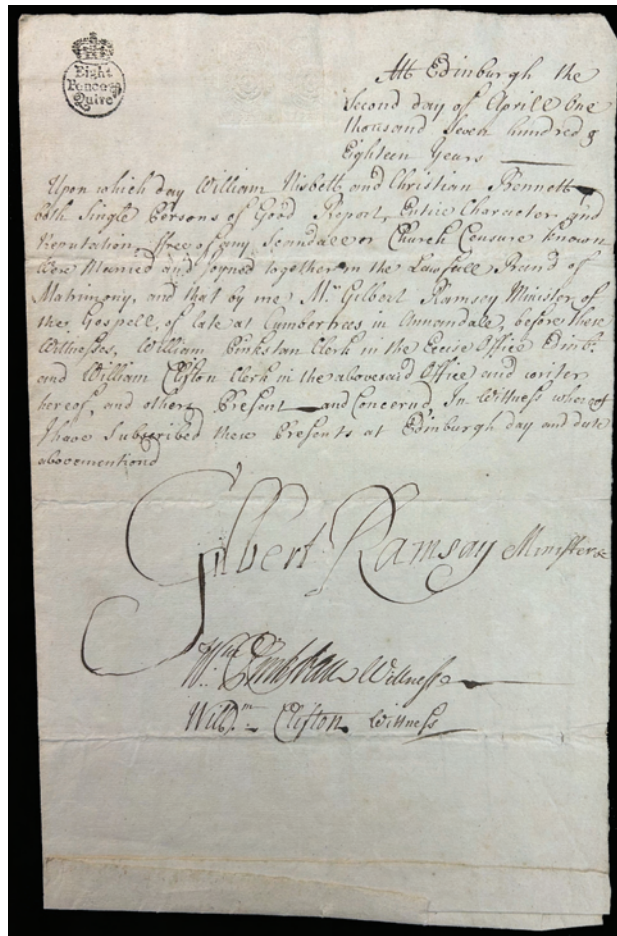 Eight
Pence ꝑ
Quire
Att Edinburgh the
Second day of Aprille One
thousand Seven hundred &
Eighteen Years
Upon which day William Nisbett and Christian Bennett
both Single Persons of Good Report, Entire Character and
Reputation, ffree of any Scandall or Church Censure known
Were Married and Joyned together in the Lawfull Band of
Matrimony, and that by me Mr. Gilbert Ramsey Minister of
the Gospell, of late at Cumbertrees in Annandale, before these
Witnesses, William Pinkstan Clerk in the Excise Office Edinb:
and William Clifton Clerk in the abovesaid Office and writer
hereof, and others Present and Concernd In Witness whereof
I have Subscribed these Presents at Edinburgh day and date
abovementiond
Gilbert Ramsay Minister
Wm Pinkstan Wittness
Will:m Clifton Wittness